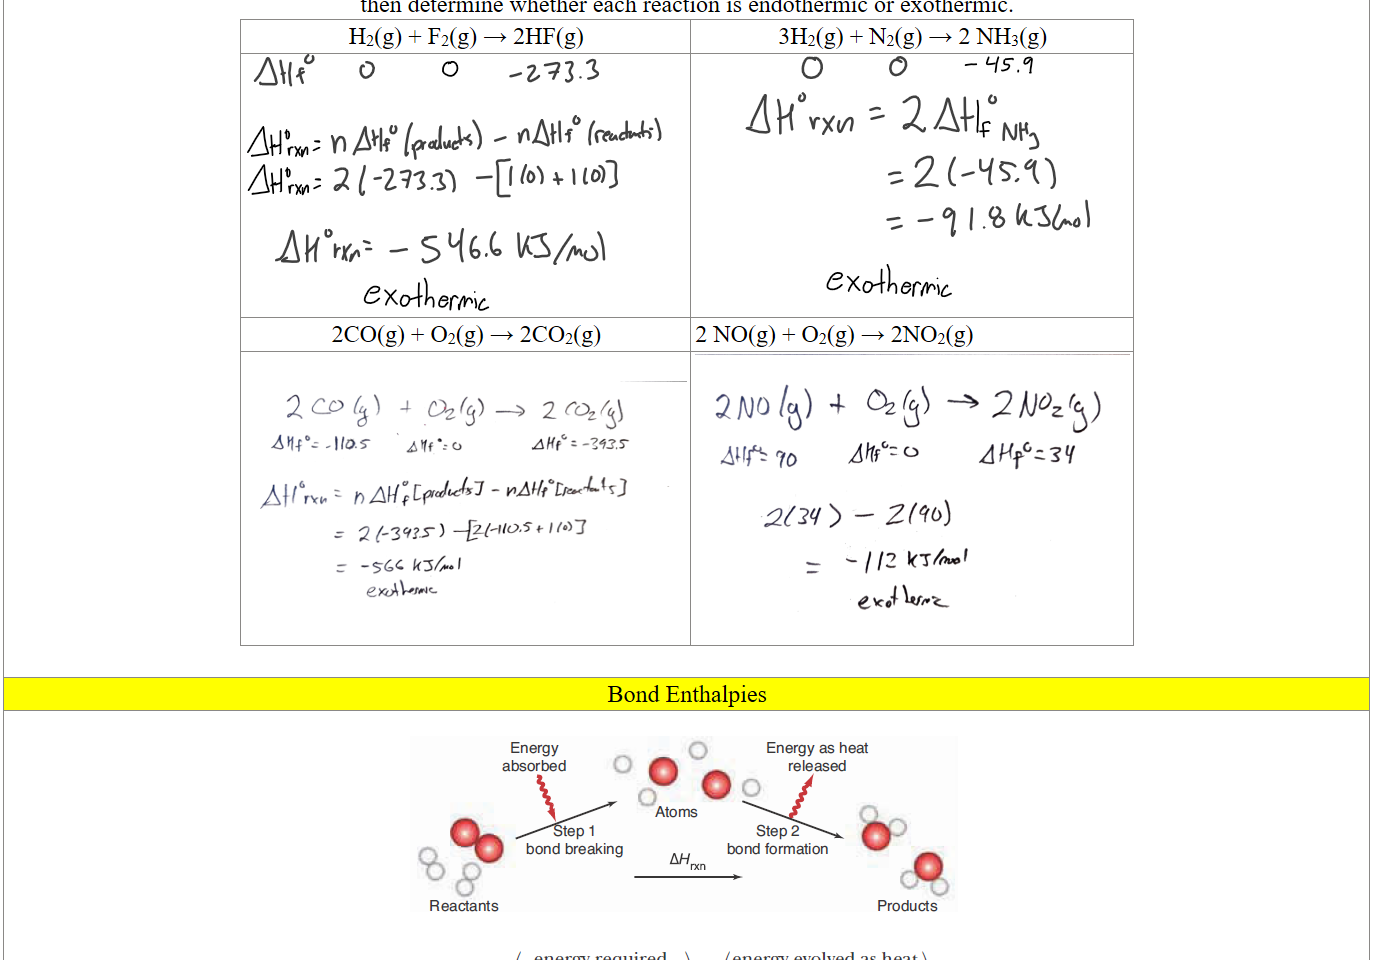 then determine whether each reaction is endothermic or exothermic.
H₂(g) + F₂(g) → 2HF(g)
ΔHf° 0 0 -273.3
ΔH°rxn = n ΔHf° (products) - nΔHf° (reactants)
ΔH°rxn = 2(-273.3) - [1(0) + 1(0)]
ΔH°rxn = - 546.6 KJ/mol
exothermic
3H₂(g) + N₂(g) → 2 NH₃(g)
0 0 -45.9
ΔH°rxn = 2 ΔHf° NH₃
= 2(-45.9)
= -91.8 KJ/mol
exothermic
2CO(g) + O₂(g) → 2CO₂(g)
2 CO(g) + O₂(g) → 2 CO₂(g)
ΔHf° = -110.5 ΔHf° = 0 ΔHf° = -393.5
ΔH°rxn = n ΔHf° [products] - nΔHf° [reactants]
= 2(-393.5) - [2(-110.5 + 1(0)]
= -566 KJ/mol
exothermic
2 NO(g) + O₂(g) → 2NO₂(g)
2NO(g) + O₂(g) → 2 NO₂(g)
ΔHf° = 90 ΔHf° = 0 ΔHf° = 34
2(34) - 2(90)
= -112 KJ/mol
exothermic
Bond Enthalpies
Energy absorbed
Energy as heat released
Atoms
Step 1 bond breaking
Step 2 bond formation
ΔHrxn
Reactants
Products
( energy required ) (energy evolved as heat)